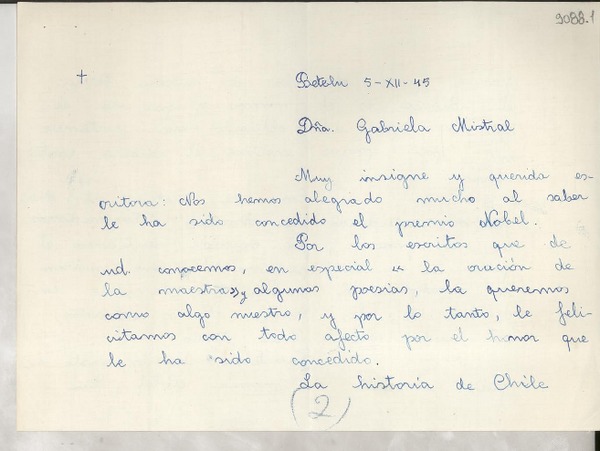 9088.1
+
Betelu 5-XII-45
Dña. Gabriela Mistral
Muy insigne y querida es-
critora: Nos hemos alegrado mucho al saber
le ha sido concedido el premio Nóbel.
Por los escritos que de
ud. conocemos, en especial "la oración de
la maestra" y algunas poesias, la queremos
como algo nuestro, y por lo tanto, le feli-
citamos con todo afecto por el honor que
le ha sido concedido.
La historia de Chile
(2)